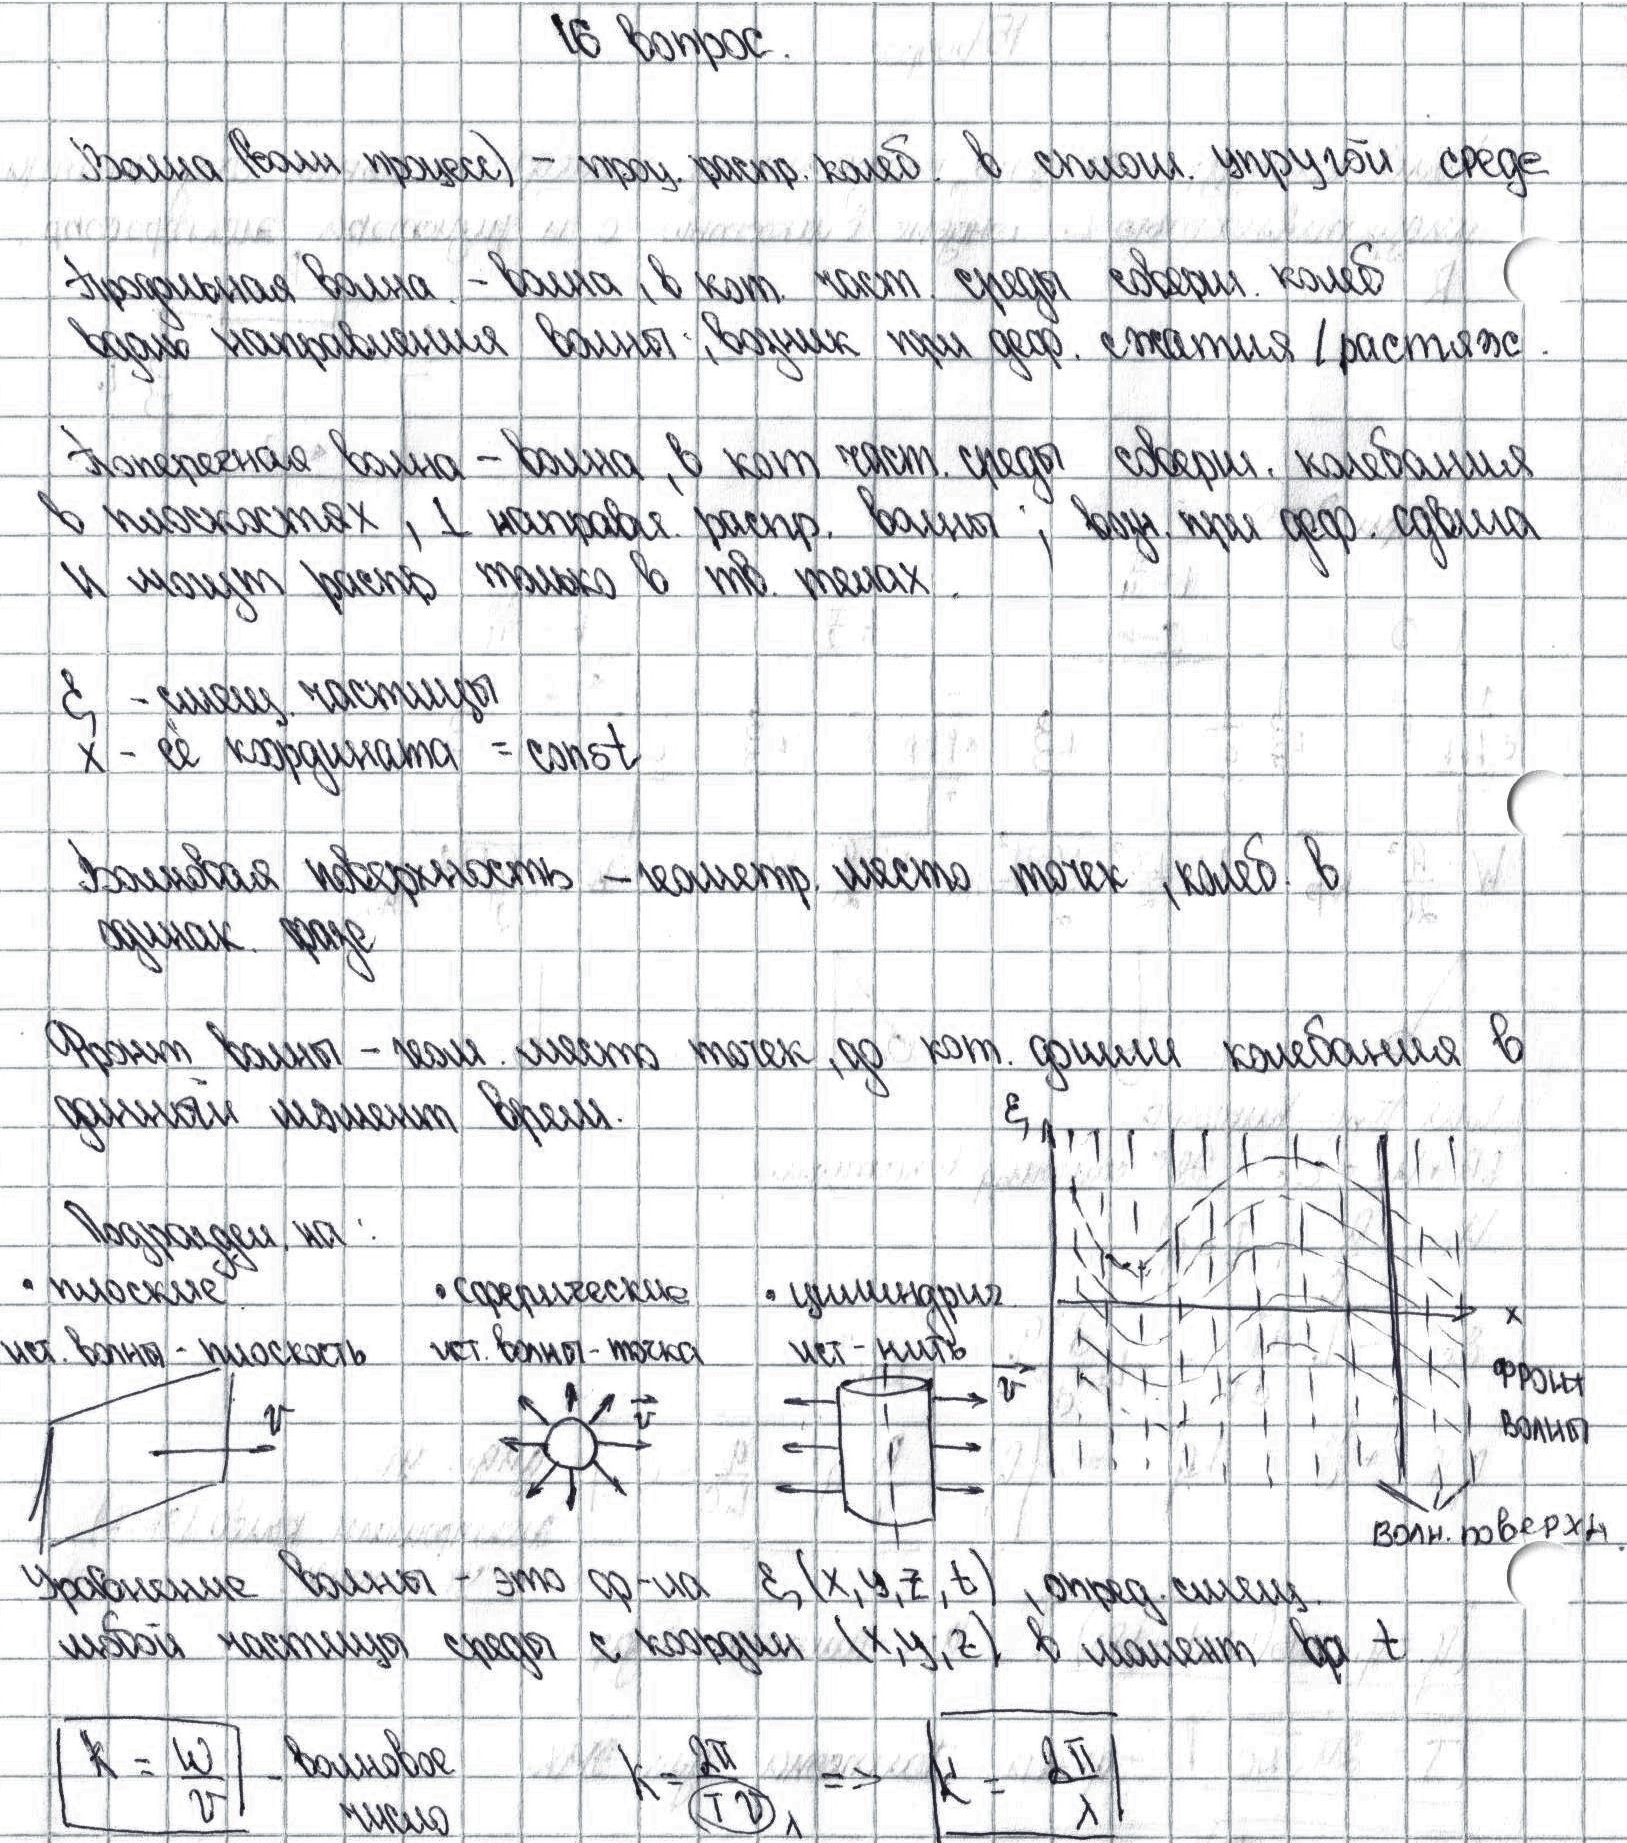 16 вопрос.
Волна (волн процесс) – проц. распр. колеб. в сплош. упругой среде
Продльная волна. – волна, в кот. част. среды соверш. колеб
вдоль направления волны; возник при деф. сжатия / растяж.
Поперечная волна – волна, в кот част. среды соверш. колебания
в плоскостях, ⊥ направл. распр. волны; возн. при деф. сдвига
и могут распр только в тв. телах.
ξ – смещ. частицы
x – её координата = const
Волновая поверхность – геометр. место точек, колеб. в
одинак. фазе
Фронт волны – геом. место точек, до кот. дошли колебания в
данный момент врем.
ξ
x
фронт
волны
волн. поверхн.
Подраздел. на:
• плоские • сферические • цилиндрич.
ист. волны - плоскость ист. волны - точка ист - нить
v v v
Уравнение волны – это ф-ла ξ(x, y, z, t), опред. смещ.
любой частицы среды с коордун (x, y, z) в момент вр t
k = ω/v – волновое число k = 2π/(Tv) λ => k = 2π/λ